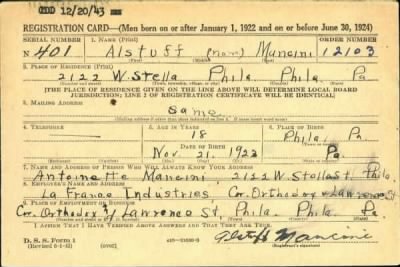 CDD 12/20/43
REGISTRATION CARD—(Men born on or after January 1, 1922 and on or before June 30, 1924)
SERIAL NUMBER 1. NAME (Print) ORDER NUMBER
N 401 Alstuff (non) Mancini 12103
2. PLACE OF RESIDENCE (Print)
2122 W. Stella Phila Phila. Pa
[THE PLACE OF RESIDENCE GIVEN ON THE LINE ABOVE WILL DETERMINE LOCAL BOARD
JURISDICTION; LINE 2 OF REGISTRATION CERTIFICATE WILL BE IDENTICAL]
3. MAILING ADDRESS
Same
4. TELEPHONE 5. AGE IN YEARS 6. PLACE OF BIRTH
18 Phila. Pa
DATE OF BIRTH
Nov. 21. 1923 Pa.
7. NAME AND ADDRESS OF PERSON WHO WILL ALWAYS KNOW YOUR ADDRESS
Antoinette Mancini, 2122 W. Stella St, Phila.
8. EMPLOYER'S NAME AND ADDRESS
La France Industries, Cor. Orthodox & Lawrence St
9. PLACE OF EMPLOYMENT OR BUSINESS
Cor. Orthodox & Lawrence St, Phila. Phila. Pa
I AFFIRM THAT I HAVE VERIFIED ABOVE ANSWERS AND THAT THEY ARE TRUE.
D. S. S. Form 1
(Revised 6-1-42) (over) Mancini
(Registrant's signature)